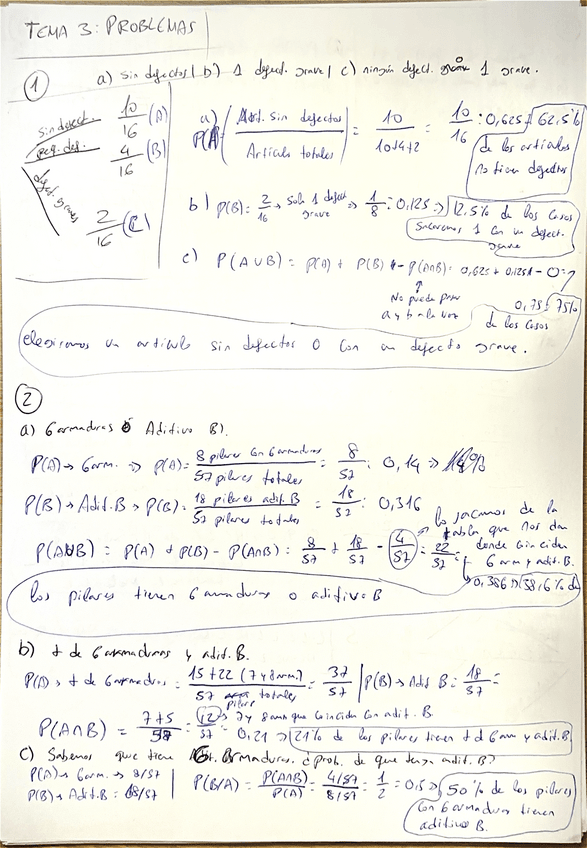 TEMA 3: PROBLEMAS
① a) sin defectos | b) 1 defect. grave | c) ningún defect. o 1 grave.
sin defect. 10/16 (A)
peq. def. 4/16 (B)
defect. graves 2/16 (C)
a) P(A) (Art. sin defectos / Artículos totales) = 10 / 10+4+2 = 10/16 : 0,625 = 62,5%
de los artículos
no tienen defectos
b) P(B) = 2/16 → Solo 1 defect. grave => 1/8 : 0,125 => 12,5% de los casos
sacaremos 1 con un defect.
grave
c) P(A∪B) = P(A) + P(B) - P(A∩B) = 0,625 + 0,1251 - 0 =
No puede pasar
a y b a la vez
0,75 = 75%
de los casos
elegiremos un artículo sin defectos o con un defecto grave.
②
a) 6 armaduras ó Aditivo B).
P(A) → 6 arm. => P(A) = 8 pilares con 6 armaduras / 57 pilares totales = 8/57 : 0,14 => 14%
P(B) → Adit. B → P(B) : 18 pilares adit. B / 57 pilares totales = 18/57 : 0,316
P(A∪B) = P(A) + P(B) - P(A∩B) = 8/57 + 18/57 - 4/57 = 22/57 =
lo sacamos de la
tabla que nos dan
donde coinciden
6 arm y adit. B.
0,386 => 38,6% de
los pilares tienen 6 armaduras o aditivo B
b) + de 6 armaduras y adit. B.
P(A) → + de 6 armaduras = 15+22 (7 y 8 arm.) / 57 pilar totales = 37/57 | P(B) → Adit B = 18/57 =
P(A∩B) = 7+5 / 57 = 12/57 = → 7 y 8 arm que coinciden con adit. B.
0,21 → 21% de los pilares tienen + d 6 arm y adit. B.
c) Sabemos que tiene 6 Armaduras. ¿prob. de que tenga adit. B?
P(A) → 6 arm. → 8/57
P(B) → Adit. B = 18/57
P(B/A) = P(A∩B) / P(A) = 4/57 / 8/57 = 1/2 = 0,5 => 50% de los pilares
con 6 armaduras tienen
aditivo B.